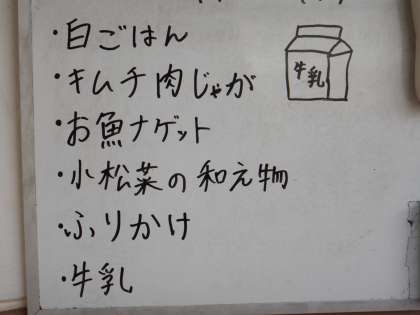 ・白ごはん
・キムチ肉じゃが
・お魚ナゲット
・小松菜の和え物
・ふりかけ
・牛乳
牛乳